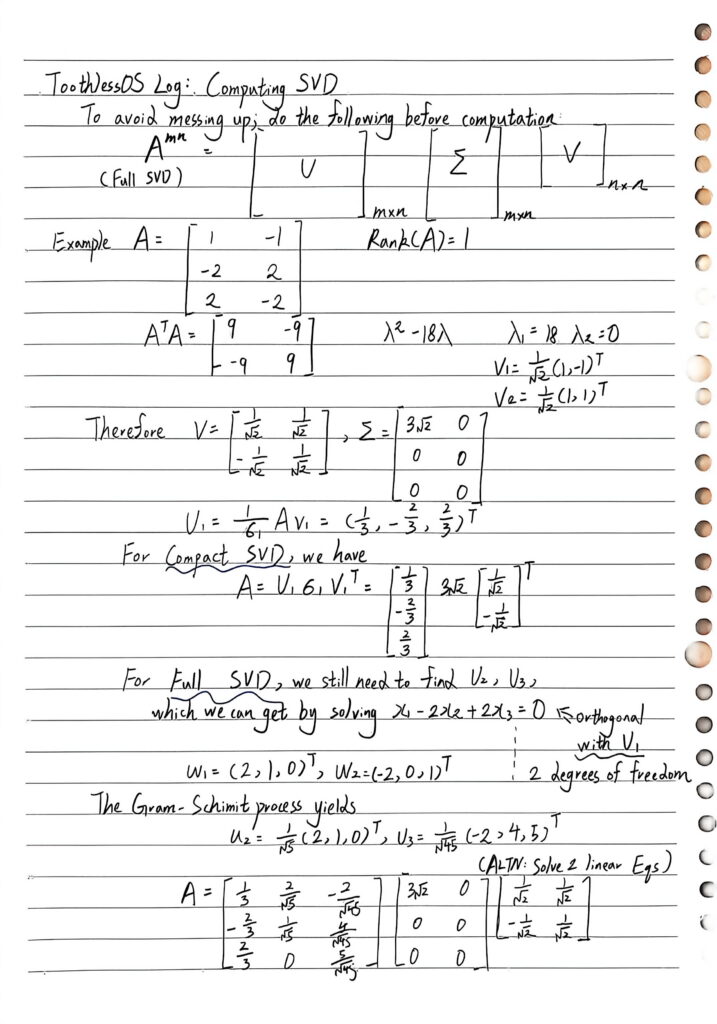 ToothlessOS Log: Computing SVD
To avoid messing up, do the following before computation:
A^{mn} = [ U ]_{m×n} [ Σ ]_{m×n} [ V ]_{n×n}
(Full SVD)
Example A = [1 -1; -2 2; 2 -2] Rank(A) = 1
A^T A = [9 -9; -9 9] λ² - 18λ λ₁ = 18 λ₂ = 0
V₁ = 1/√2 (1, -1)^T
V₂ = 1/√2 (1, 1)^T
Therefore V = [1/√2 1/√2; -1/√2 1/√2], Σ = [3√2 0; 0 0; 0 0]
U₁ = 1/6₁ A v₁ = (1/3, -2/3, 2/3)^T
For Compact SVD, we have
A = U₁ 6₁ V₁^T = [1/3; -2/3; 2/3] 3√2 [1/√2; -1/√2]^T
For Full SVD, we still need to find U₂, U₃,
which we can get by solving x₁ - 2x₂ + 2x₃ = 0 ← orthogonal
with U₁
W₁ = (2, 1, 0)^T, W₂ = (-2, 0, 1)^T 2 degrees of freedom
The Gram-Schimit process yields
u₂ = 1/√5 (2, 1, 0)^T, U₃ = 1/√45 (-2, 4, 5)^T
(ALTN: Solve 2 linear Eqs)
A = [1/3 2/√5 -2/√45; -2/3 1/√5 4/√45; 2/3 0 5/√45] [3√2 0; 0 0; 0 0] [1/√2 1/√2; -1/√2 1/√2]